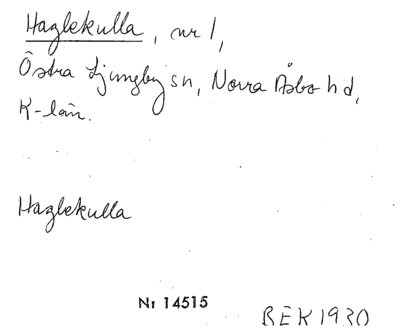 Haglekulla, nr 1,
Östra Ljungby sn, Norra Åsbo hd,
K-län.
Haglekulla
Nr 14515
BEK 1930